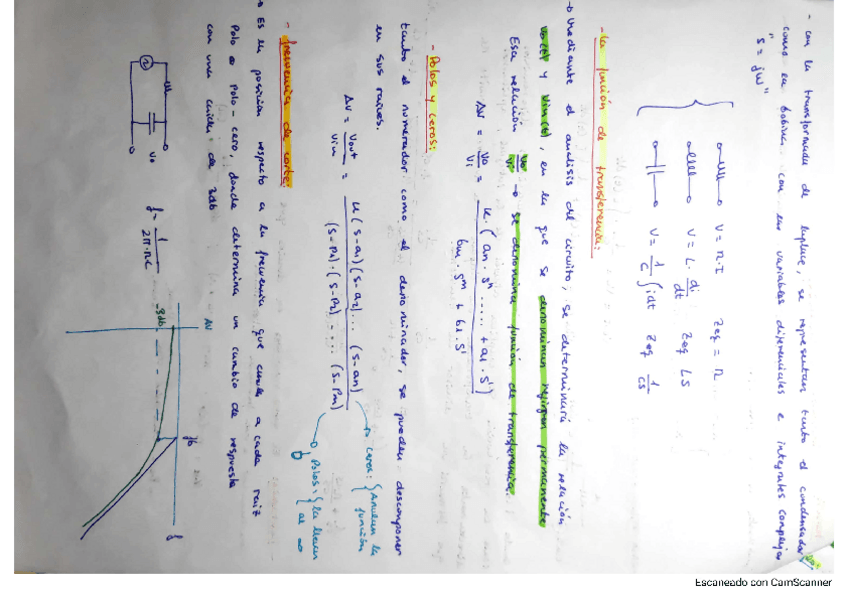 - con la transformada de laplace, se representan tanto el condensador
como la bobina con las variables diferenciales e integrales complejas
"s = jw"
V = R·I Zeq = R
V = L · di/dt Zeq LS
V = 1/C ∫idt Zeq 1/CS
- La función de transferencia:
→ Mediante el analisis del circuito, se determinará la relación
Vo(t) y Vin(t), en la que se denominan régimen permanente
Esa relación Vo/Vi → se denomina función de transferencia.
AV = Vo/Vi = K·(an·Sⁿ ..... + a1·S¹) / bm·Sᵐ + b1·S¹
- Polos y ceros:
tanto el numerador como el denominador, se pueden descomponer
en sus raices.
AV = Vout/Vin = K(S-a1)(S-a2)... (S-an) / (S-P1)·(S-P2)-... (S-Pm)
→ ceros: {Anulan la función
→ Polos: {la llevan al ∞
- frecuencia de corte:
→ Es la posición respecto a la frecuencia que cada raiz
Polo o Polo-cero, donde determina un cambio de respuesta
con una caida de 3db
Vo
f = 1/2π·RC
AV
-3db
fb
f
Escaneado con CamScanner